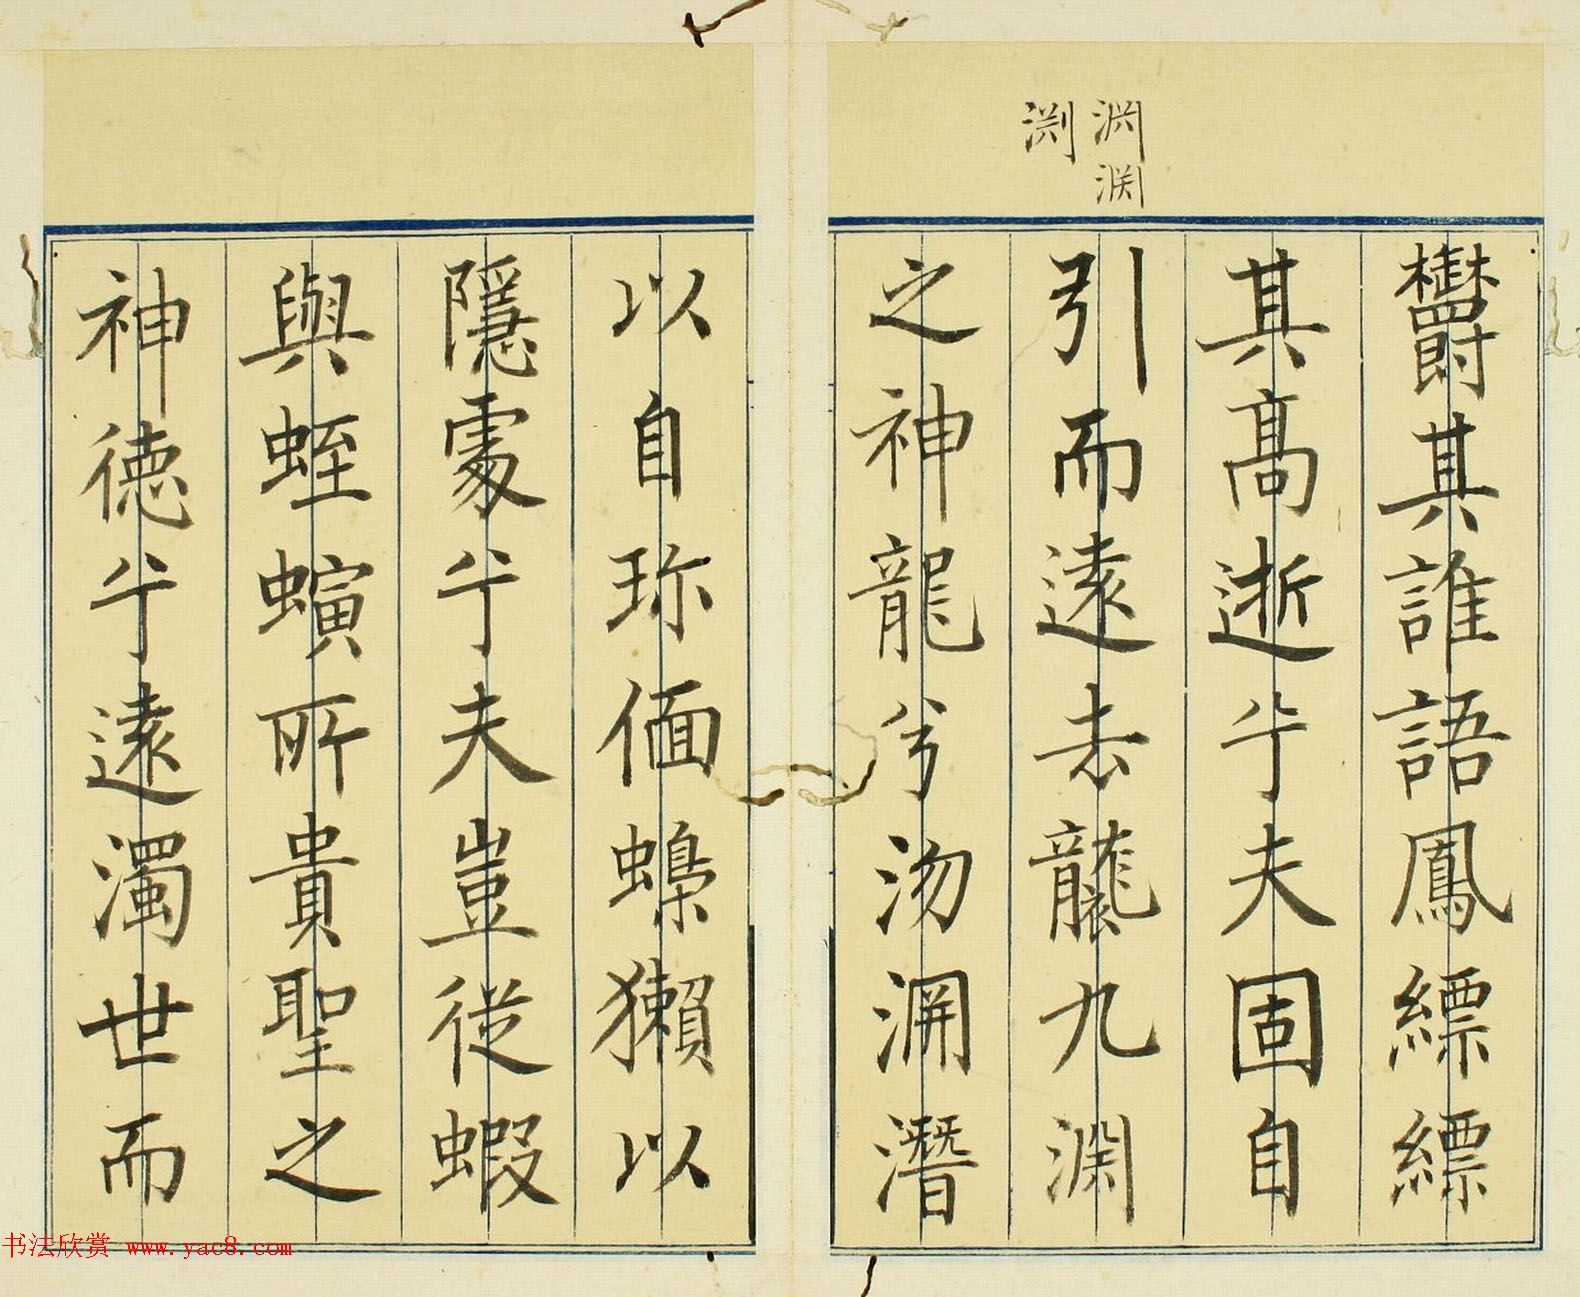 渊渆
渕
欝其誰語鳳縹縹
其髙逝兮夫固自
引而遠去襲九渊
之神龍兮沕淵潛
以自珍偭蟂獺以
隱處兮夫豈從蝦
與蛭螾所貴聖之
神德兮遠濁世而
书法欣赏 www.yac8.com